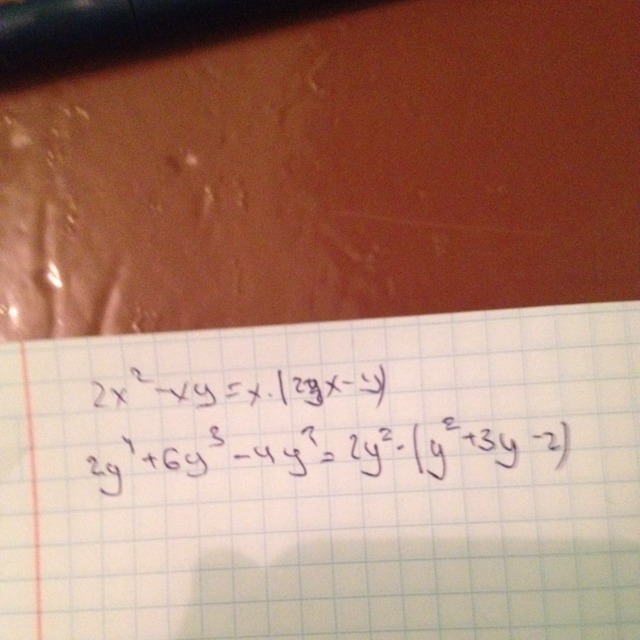 2x² - xy = x · (2x - y)
2y⁴ + 6y³ - 4y² = 2y² · (y² + 3y - 2)